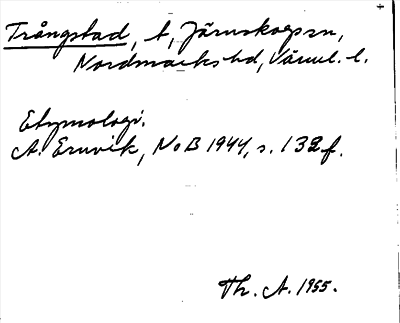 Trångstad, t, Järnskogs sn,
Nordmarks hd, Värml. l.
Etymologi.
A. Ernvik, NoB 1944, s. 132 f.
Th. A. 1955.